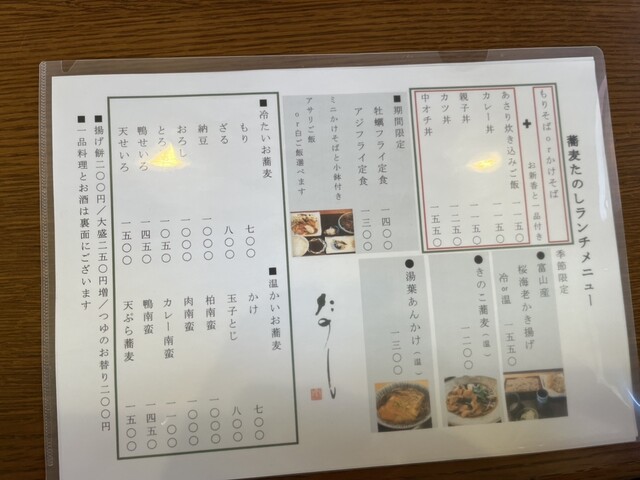 蕎麦たのしランチメニュー
もりそばorかけそば
+
お新香と一品付き
あさり炊き込みご飯 一一五〇
カレー丼 一一五〇
親子丼 一一五〇
カツ丼 一二五〇
中オチ丼 一一五〇
■期間限定
牡蠣フライ定食 一四〇〇
アジフライ定食 一三〇〇
ミニかけそばと小鉢付き
アサリご飯
or白ご飯選べます
季節限定
●富山産
桜海老かき揚げ
冷or温 一五五〇
●きのこ蕎麦(温) 一二〇〇
●湯葉あんかけ(温) 一三〇〇
たのし
■冷たいお蕎麦
もり 七〇〇
ざる 八〇〇
納豆 一〇〇〇
おろし 一〇〇〇
とろ 一〇五〇
鴨せいろ 一四五〇
天せいろ 一五〇〇
■温かいお蕎麦
かけ 七〇〇
玉子とじ 八〇〇
柏南蛮 一〇〇〇
肉南蛮 一〇〇〇
カレー南蛮 一一〇〇
鴨南蛮 一四五〇
天ぷら蕎麦 一五〇〇
■揚げ餅二〇〇円/大盛二五〇円増/つゆのお替り二〇〇円
■一品料理とお酒は裏面にございます